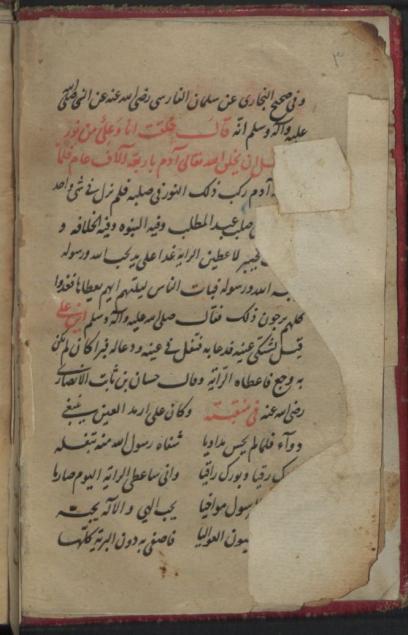 ٣
وفي صحيح البخاري عن سلمان الفارسي رضي الله عنه عن النبي صلى الله
عليه وآله وسلم انه قال خلقت انا وعلي من نور
ان يخلق الله تعالى آدم باربعة آلاف عام فلما
آدم ركب ذلك النور في صلبه فلم نزل في شئ واحد
صلب عبد المطلب وفيه النبوه وفيه الخلافه و
خيبر لاعطين الراية غدا على يد يحب الله ورسوله
الله ورسوله فبات الناس ليلتهم ايهم يعطاها فغدوا
كلهم يرجون ذلك فقال صلى الله عليه وآله وسلم اين علي
قيل يشتكي عينيه فدعا به فتفل في عينيه ودعا له فبرا كان لم يكن
به وجع فاعطاه الراية وقال حسان بن ثابت الانصاري
رضي الله عنه في منقبته وكان علي ارمد العين يبتغي
دوآء فلما لم يحس مداويا شفاه رسول الله منه بتفله
رقيا وبورك راقيا وانى ساعطى الراية اليوم صارما
لرسول مواخيا يحب الهى والآله يحبه
العواليا فاصفى به دون البرية كلها